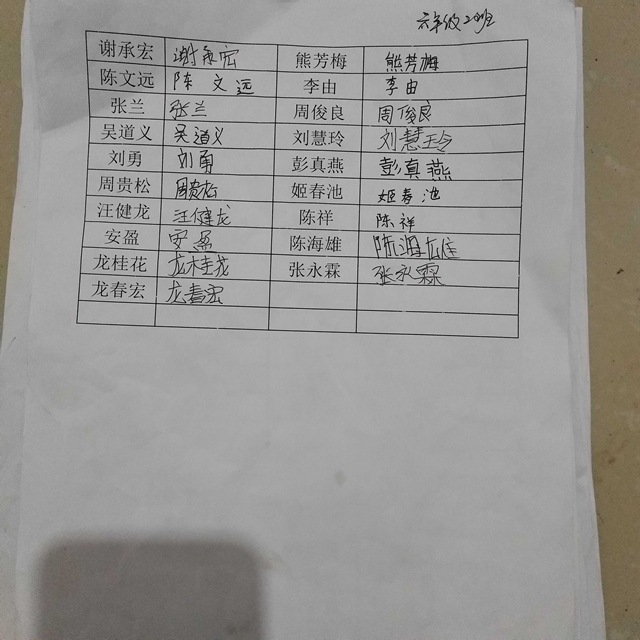 六年级2班
谢承宏 谢承宏 熊芳梅 熊芳梅
陈文远 陈文远 李由 李由
张兰 张兰 周俊良 周俊良
吴道义 吴道义 刘慧玲 刘慧玲
刘勇 刘勇 彭真燕 彭真燕
周贵松 周贵松 姬春池 姬春池
汪健龙 汪健龙 陈祥 陈祥
安盈 安盈 陈海雄 陈海雄
龙桂花 龙桂花 张永霖 张永霖
龙春宏 龙春宏